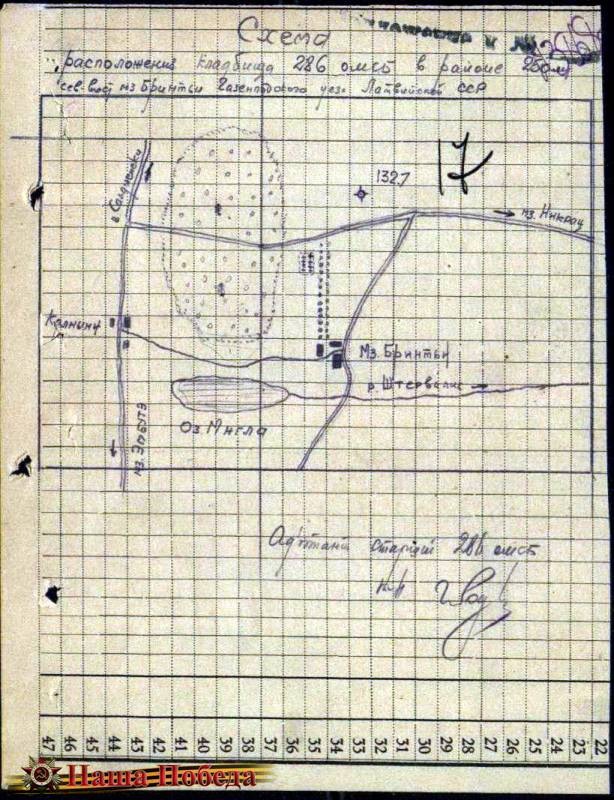 Схема
расположения кладбища 286 омсб в районе 250 м
сев-вост мз Бринтьи Газенпотского уез. Латвийской ССР
17
132,7
мз. Никрац
Калныни
Мз. Бринтьи
р. Штервалис
Оз. Мигла
мз. Эмботэ
Адъютант старший 286 омсб
47 46 45 44 43 42 41 40 39 38 37 36 35 34 33 32 31 30 29 28 27 26 25 24 23 22
Наша Победа